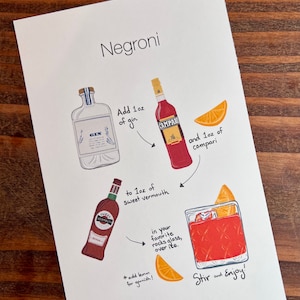 Negroni
Add 1oz
of gin
GIN
and 1oz of
campari
to 1oz of
sweet vermouth
in your
favorite
rocks glass,
over ice.
Stir and Enjoy!